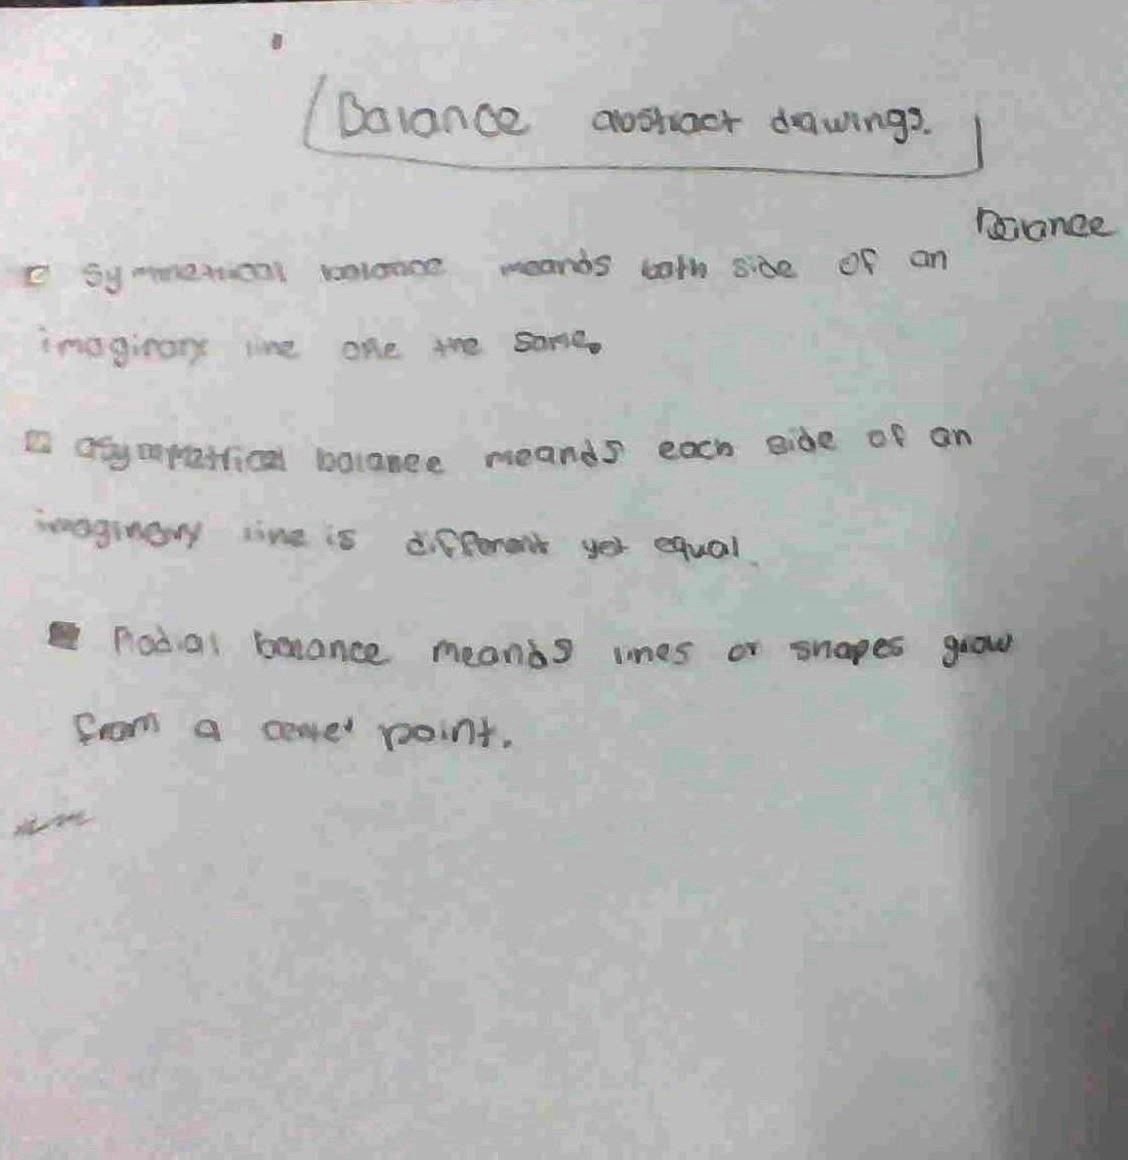 Balance abstract drawings.
Balance
Symmetrical balance meands both side of an
imaginary line are the same.
asymmetrical balance meands each side of an
imaginary line is different yet equal.
Radial balance meands lines or shapes grow
from a center point.